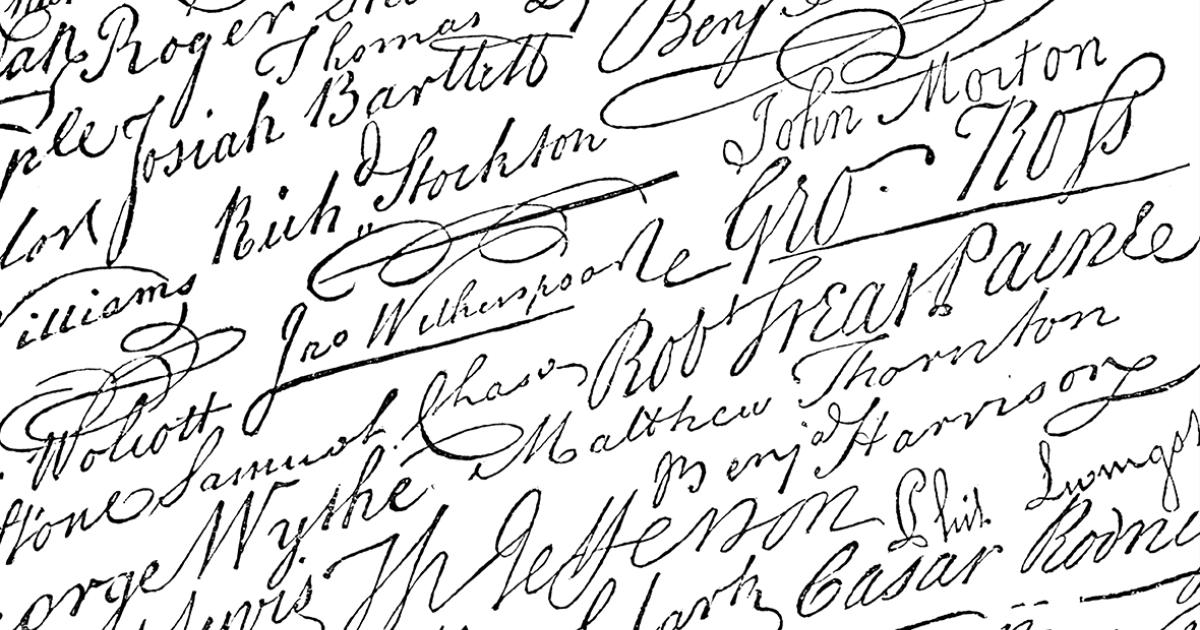 Roger
Thomas
Benj
Josiah Bartlett
John Morton
Rich d Stockton
Geo. Ross
Williams
Jno Witherspoon
Rob t Treat Paine
Wolcott
Samuel Chase
Matthew Thornton
tone
George Wythe
Benj a Harrison
Lewis
Th Jefferson
Phil. Livingst
Clark
Cæsar Rodney